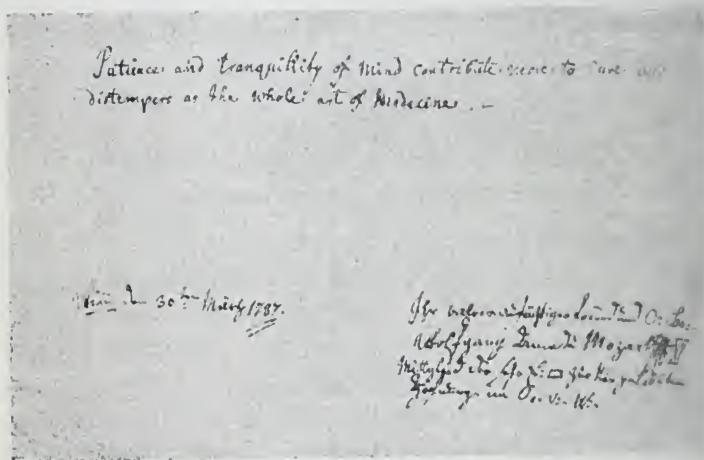 Patience and tranquility of mind contribute more to cure our
distempers as the whole art of Medicine. –
Wien den 30:ten März 1787.
Ihr wahrer aufrichtiger Freund und O: Br:
Wolfgang Amadè Mozart
Mitglied der S: E: □ zur Neugekrönten
Hofnung im O: v: W: